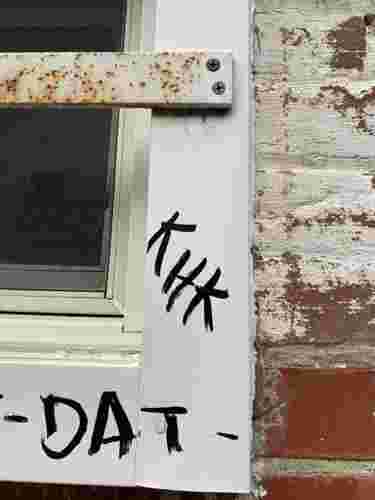 KHK
-DAT-